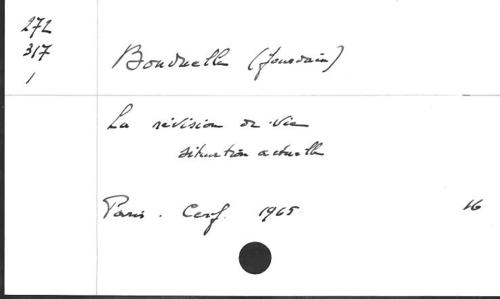 272
317
1
Bonduelle (Jourdain)
La révision de vie
situation actuelle
Paris. Cerf. 1965
16